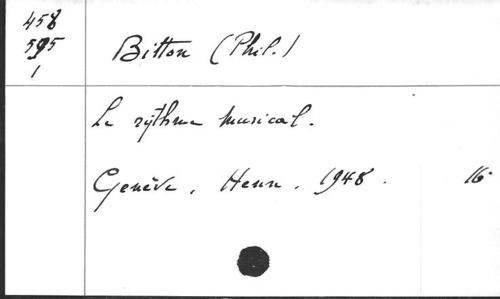 458
595
1
Bitton (Phil.)
Le rythme musical.
Genève, Henn, 1948. 16°